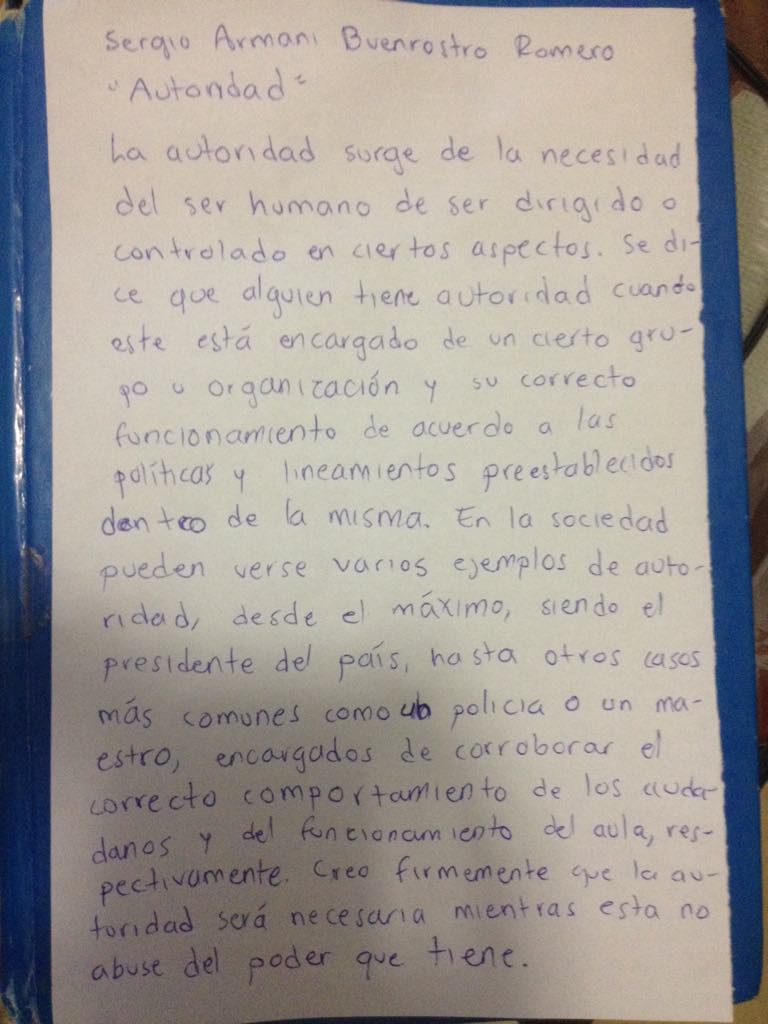 Sergio Armani Buenrostro Romero
"Autoridad"
La autoridad surge de la necesidad
del ser humano de ser dirigido o
controlado en ciertos aspectos. Se di-
ce que alguien tiene autoridad cuando
este está encargado de un cierto gru-
po u organización y su correcto
funcionamiento de acuerdo a las
políticas y lineamientos preestablecidos
dentro de la misma. En la sociedad
pueden verse varios ejemplos de auto-
ridad, desde el máximo, siendo el
presidente del país, hasta otros casos
más comunes como un policia o un ma-
estro, encargados de corroborar el
correcto comportamiento de los ciuda-
danos y del funcionamiento del aula, res-
pectivamente. Creo firmemente que la au-
toridad será necesaria mientras esta no
abuse del poder que tiene.